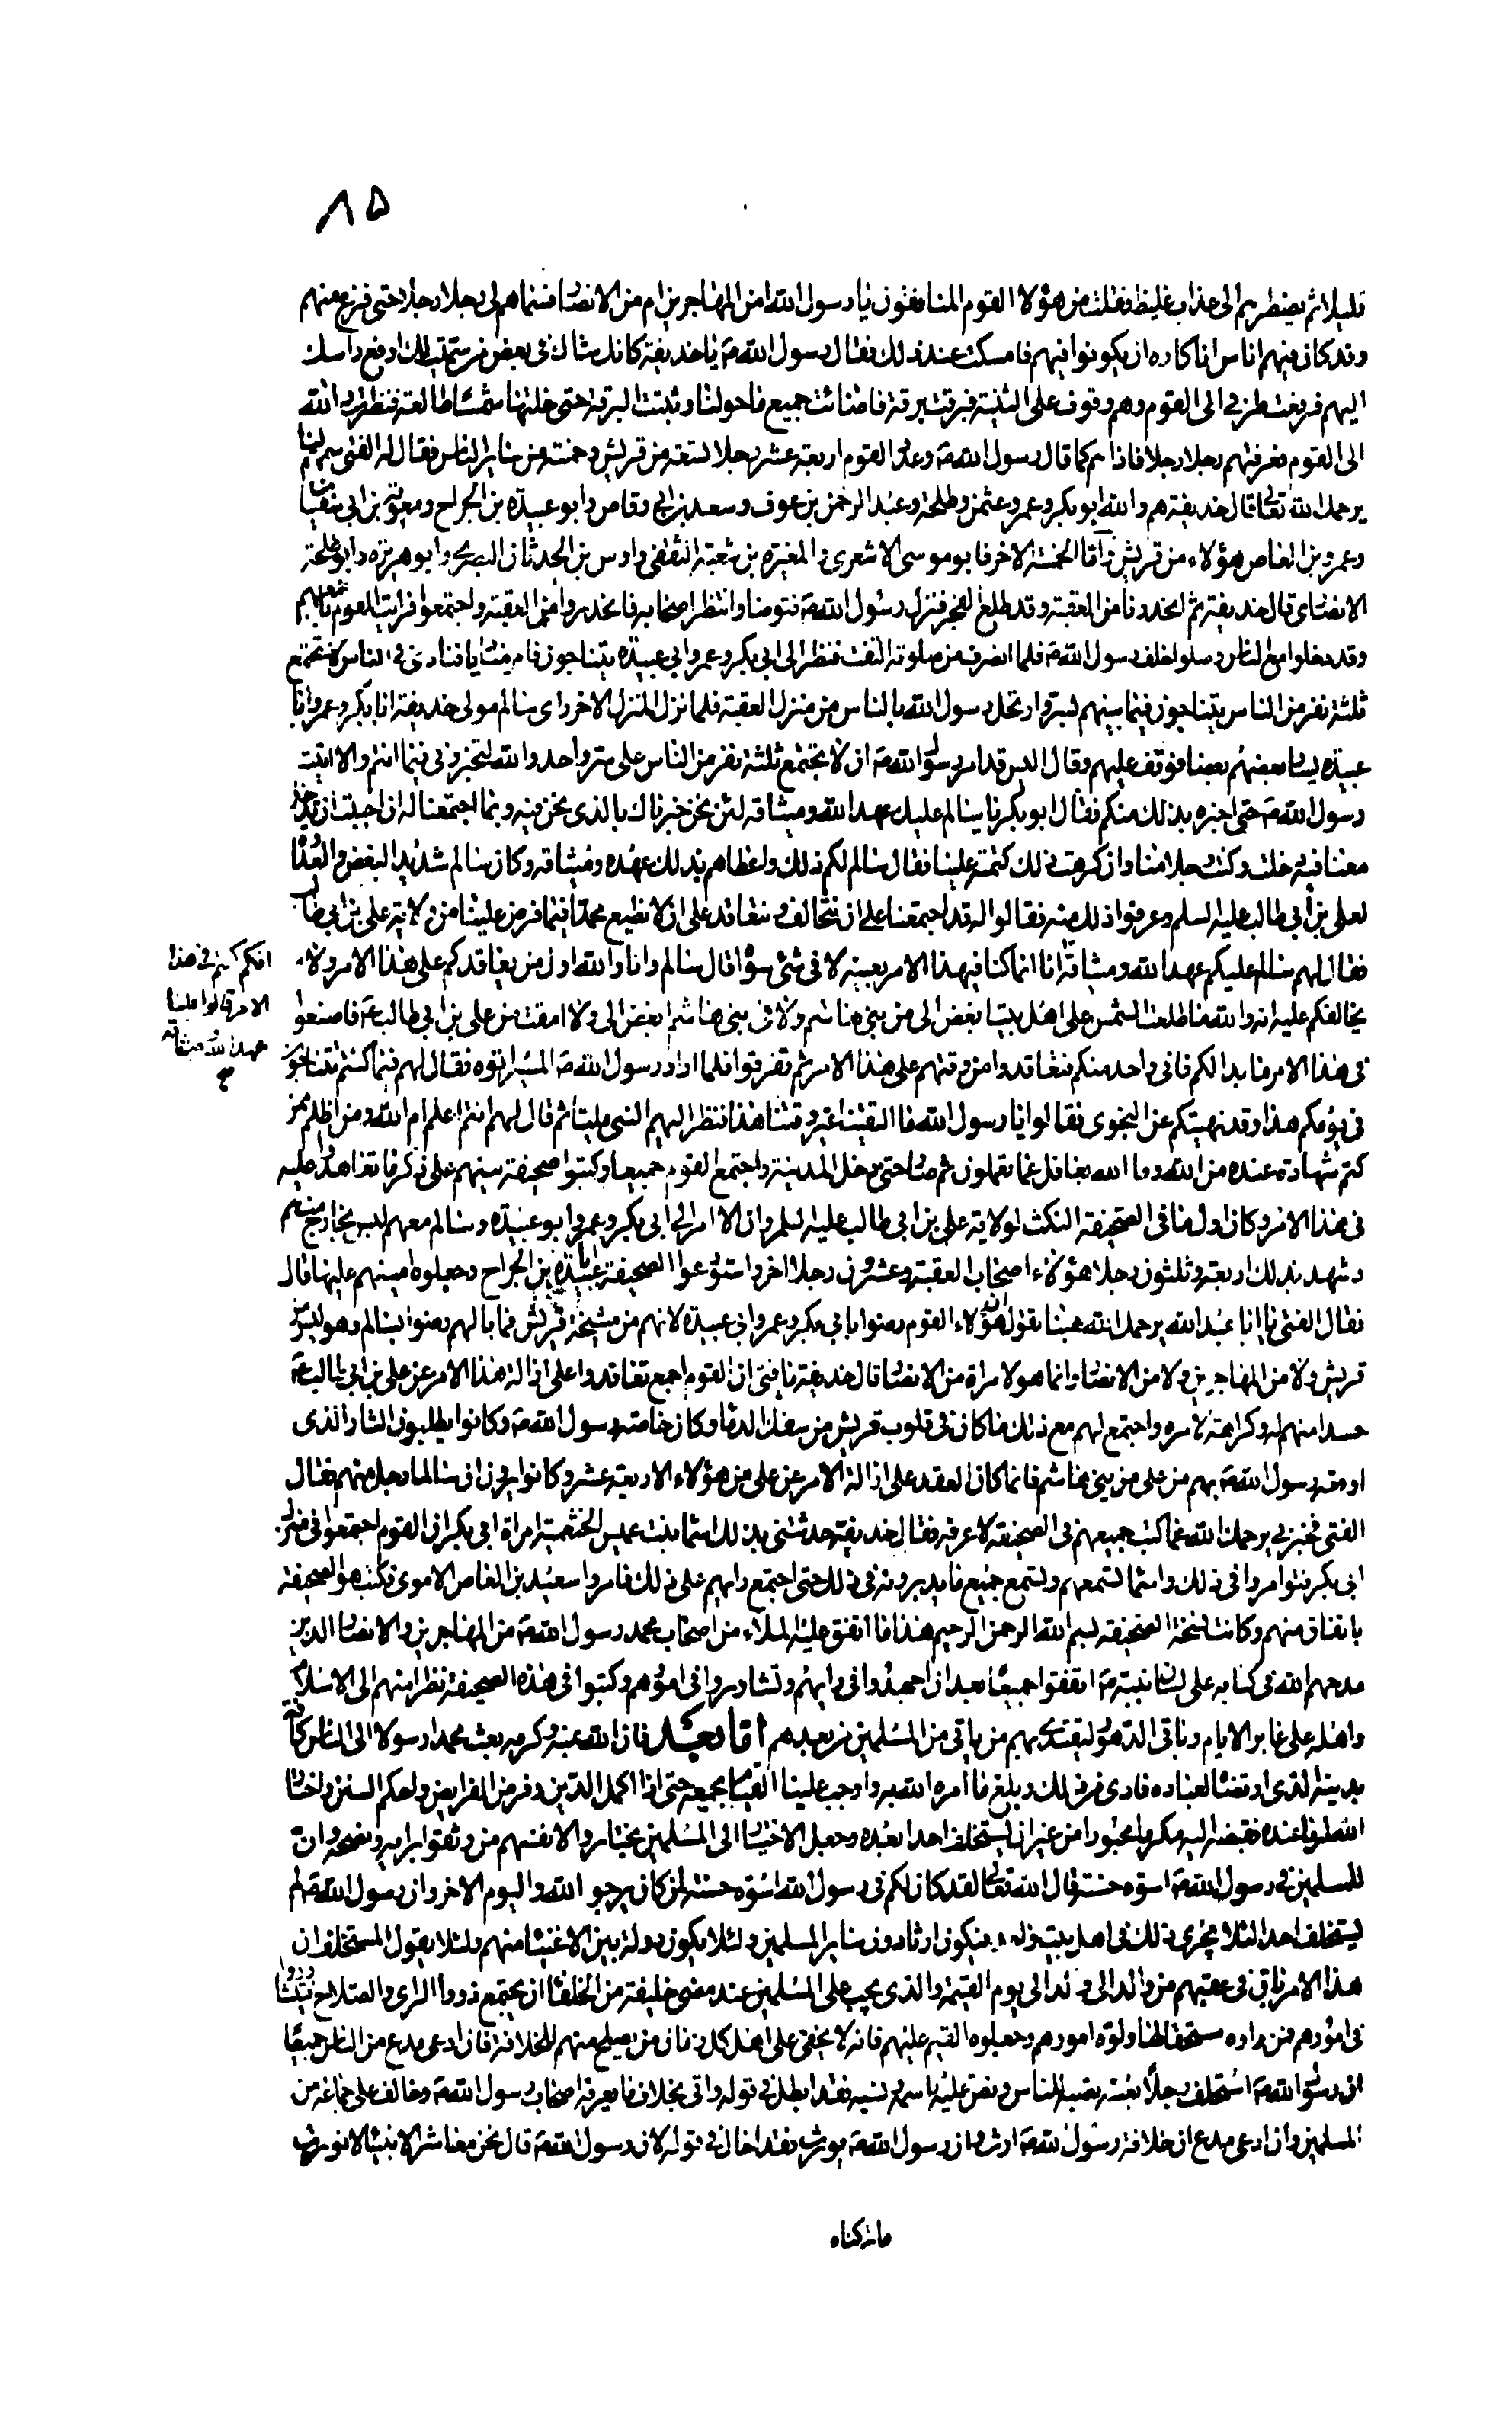 ٨٥
قليلا ثم يضطرهم الى عذاب غليظ فقلت من هؤلاء القوم المنافقون يا رسول الله امن المهاجرين ام من الانصار فسماهم لى رجلا رجلا حتى فرغ منهم
وقد كان فيهم اناس انا كاره ان يكونوا فيهم فامسكت عند ذلك فقال رسول الله ص يا حذيفة كانك شاك فى بعض من سميت لك ارفع راسك
اليهم فرفعت طرفى الى القوم وهم وقوف على الثنية فبرقت برقة فاضائت جميع ما حولنا وثبتت البرقة حتى خلتها شمسا طالعة فنظرت والله
الى القوم فعرفتهم رجلا رجلا فاذا هم كما قال رسول الله ص وعدد القوم اربعة عشر رجلا تسعة من قريش وخمسة من ساير الناس فقال له الفتى سمهم لنا
يرحمك الله تعالى قال حذيفة هم والله ابو بكر وعمر وعثمن وطلحة وعبد الرحمن بن عوف وسعد بن ابى وقاص وابو عبيدة بن الجراح ومعوية بن ابى سفيان
وعمرو بن العاص هؤلاء من قريش واما الخمسة الاخر فابو موسى الاشعرى والمغيرة بن شعبة الثقفى واوس بن الحدثان البصرى وابو هريرة وابو طلحة
الانصارى قال حذيفة ثم انحدرنا من العقبة وقد طلع الفجر فنزل رسول الله ص فتوضا وانتظر اصحابه فانحدروا من العقبة واجتمعوا فرايت القوم باجمعهم
وقد دخلوا مع الناس وصلوا خلف رسول الله ص فلما انصرف من صلوته التفت فنظر الى ابى بكر وعمر وابى عبيدة يتناجون فامر مناديا فنادى فى الناس لا تجتمع
ثلثة نفر من الناس يتناجون فيما بينهم بسر وارتحل رسول الله بالناس من منزل العقبة فلما نزل المنزل الاخر راى سالم مولى حذيفة ابا بكر وعمر وابا
عبيدة يسار بعضهم بعضا فوقف عليهم وقال اليس قد امر رسول الله ص ان لا تجتمع ثلثة نفر من الناس على سر واحد والله لتخبرونى فيما انتم والا اتيت
رسول الله ص حتى اخبره بذلك منكم فقال ابو بكر يا سالم عليك عهد الله وميثاقه لئن نحن خبرناك بالذى نحن فيه وبما اجتمعنا له ان احببت ان تدخل
معنا فيه دخلت وكنت رجلا منا وان كرهت ذلك كتمته علينا فقال سالم لكم ذلك واعطاهم بذلك عهده وميثاقه وكان سالم شديد البغض والعداوة
لعلى بن ابى طالب عليه السلم وعرفوا ذلك منه فقالوا له قد اجتمعنا على ان نتحالف ونتعاقد على ان لا نطيع محمدا فيما فرض علينا من ولاية على بن ابى طالب
فقال لهم سالم عليكم عهد الله وميثاقه انا انما كنا فيهذا الامر بعينه لا فى شئ سواه قال سالم وانا والله اول من يعاقدكم على هذا الامر ولا
افكم كنتم فى هذا
الامر قالوا علينا
عهد الله وميثاقه
صح
يخالفكم عليه انه والله ما طلعت الشمس على اهل بيت ابغض الى من بنى هاشم ولا فى بنى هاشم ابغض الى ولا امقت من على بن ابى طالب ع فاصنعوا
فى هذا الامر ما بدا لكم فانى واحد منكم فتعاقدوا من وقتهم على هذا الامر ثم تفرقوا فلما اراد رسول الله ص المسير اتوه فقال لهم فيما كنتم تتناجون
فى يومكم هذا وقد نهيتكم عن النجوى فقالوا يا رسول الله ما التقينا غير وقتنا هذا فنظر اليهم النبى مليا ثم قال لهم انتم اعلم ام الله ومن اظلم ممن
كتم شهادة عنده من الله وما الله بغافل عما تعملون ثم سار حتى دخل المدينة واجتمع القوم جميعا وكتبوا صحيفة بينهم على ذكر ما تعاهدوا عليه
فى هذا الامر وكان اول ما فى الصحيفة النكث لولاية على بن ابى طالب عليه السلم وان الامر الى ابى بكر وعمر وابو عبيدة وسالم معهم ليس بخارج منهم
وشهد بذلك اربعة وثلثون رجلا هؤلاء اصحاب العقبة وعشرون رجلا اخر واستودعوا الصحيفة ابا عبيدة بن الجراح وجعلوه امينهم عليها قال
فقال الفتى يا ابا عبد الله يرحمك الله هبنا نقول ان هؤلاء القوم رضوا بابى بكر وعمر وابى عبيدة لانهم من مشيخة قريش فما بالهم رضوا بسالم وهو ليس من
قريش ولا من المهاجرين ولا من الانصار وانما هو لامراة من الانصار قال حذيفة يا فتى ان القوم اجمع تعاقدوا على ازالة هذا الامر عن على بن ابى طالب ع
حسدا منهم له وكراهة لامره واجتمع لهم مع ذلك ما كان فى قلوب قريش من سفك الدماء وكان خاصة رسول الله ص وكانوا يطلبون الثار الذى
اوقعه رسول الله ص بهم من على من بنى هاشم فانما كان العقد على ازالة الامر عن على من هؤلاء الاربعة عشر وكانوا يرون ان سالما رجل منهم فقال
الفتى فخبرنى يرحمك الله عما كتب جميعهم فى الصحيفة لاعرفه فقال حذيفة حدثتنى بذلك اسماء بنت عميس الخثعمية امراة ابى بكر ان القوم اجتمعوا فى منزل
ابى بكر فتوامروا فى ذلك واسماء تسمعهم وتسمع جميع ما يدبرونه فى ذلك حتى اجتمع رايهم على ذلك فامروا سعيد بن العاص الاموى فكتب هو الصحيفة
باتفاق منهم وكانت نسخة الصحيفة بسم الله الرحمن الرحيم هذا ما اتفق عليه الملاء من اصحاب محمد رسول الله ص من المهاجرين والانصار الذين
مدحهم الله فى كتابه على لسان نبيه ص اتفقوا جميعا بعد ان اجهدوا فى رايهم وتشاوروا فى امورهم وكتبوا فى هذه الصحيفة نظرا منهم الى الاسلام
واهله على غابر الايام وباقى الدهور ليقتدى بهم من ياتى من المسلمين من بعدهم اما بعد فان الله بمنه وكرمه بعث محمدا رسولا الى الناس كافة
بدينه الذى ارتضاه لعباده فادى من ذلك وبلغ ما امره الله به واوجب علينا القيام بجميعه حتى اذا اكمل الدين وفرض الفرايض واحكم السنن واختار
الله له ما عنده فقبضه اليه مكرما محبورا من غير ان يستخلف احدا بعده وجعل الاختيار الى المسلمين يختارو الانفسهم من وثقوا برايه ونصحه وان
للمسلمين فى رسول الله ص اسوة حسنة قال الله تعالى لقد كان لكم فى رسول الله اسوة حسنة لمن كان يرجو الله واليوم الاخر وان رسول الله ص لم
يستخلف احدا لئلا يجرى ذلك فى اهل بيت واحد فيكون ارثا دون ساير المسلمين ولئلا يكون دولة بين الاغنياء منهم ولئلا يقول المستخلف ان
هذا الامر باق فى عقبهم من والد الى ولد الى يوم القيمة والذى يجب على المسلمين عند مضى خليفة من الخلفاء ان يجتمع ذووا الراى والصلاح فيتشاوروا
فى امورهم فمن راوه مستحقا لها ولوه امورهم وجعلوه القيم عليهم فانه لا يخفى على اهل كل زمان من يصلح منهم للخلافة فان ادعى مدع من الناس جميعا
ان رسول الله ص استخلف رجلا بعينه نصبه للناس ونص عليه باسمه ونسبه فقد ابطل فى قوله واتى بخلاف ما يعرفه اصحاب رسول الله ص وخالف على جماعة من
المسلمين وان ادعى مدع ان خلافة رسول الله ص ارث وان رسول الله ص يورث فقد احال فى قوله لان رسول الله ص قال نحن معاشر الانبياء لا نورث
ما تركناه